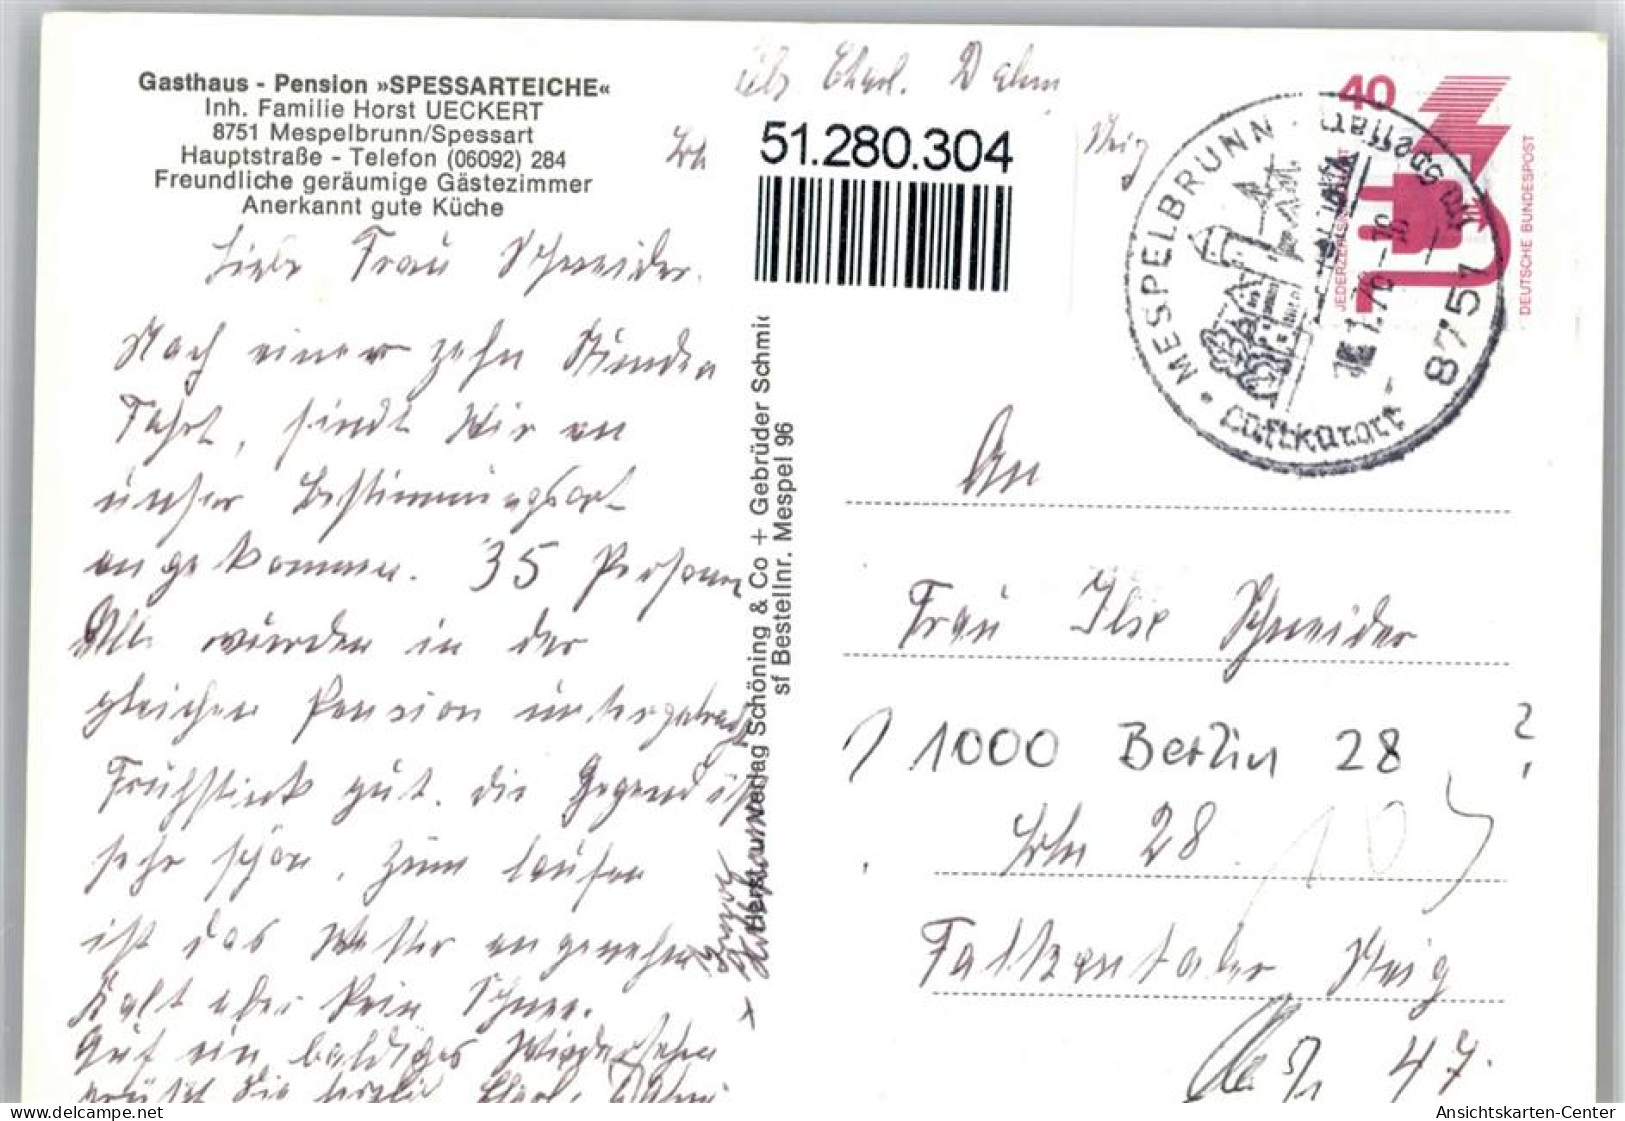 Gasthaus - Pension »SPESSARTEICHE«
Inh. Familie Horst UECKERT
8751 Mespelbrunn/Spessart
Hauptstraße - Telefon (06092) 284
Freundliche geräumige Gästezimmer
Anerkannt gute Küche
Charl. Dahm
51.280.304
Liebe Frau Schneider.
Nach einer zehn Stunden
Fahrt, sindt Wir an
unser Bestimmungsort
angekommen. 35 Personen
Alle wurden in der
gleichen Pension
Frühstück gut. die Gegend ist
sehr schön, zum laufen
ist das Wetter angenehm
Kalt aber kein Schnee.
Auf ein baldiges Wiedersehen
grüßt Sie Charl. Dahm
Herst. u. Verlag Schöning & Co + Gebrüder Schmi
sf Bestellnr. Mespel 96
40
JEDERZEIT
DEUTSCHE BUNDESPOST
MESPELBRUNN · im Spessart
8751
Luftkurort
An
Frau Ilse Schneider
? 1000 Berlin 28 ?
Bln 28
Falkentaler Steig
47.
delcampe.net
hem1960
Ansichtskarten-Center